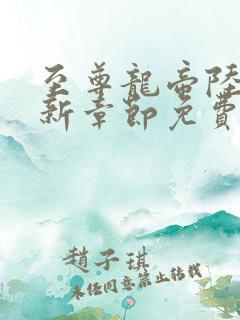 至尊龍帝陸
新章節免費
趙子琪
未經同意禁止轉載